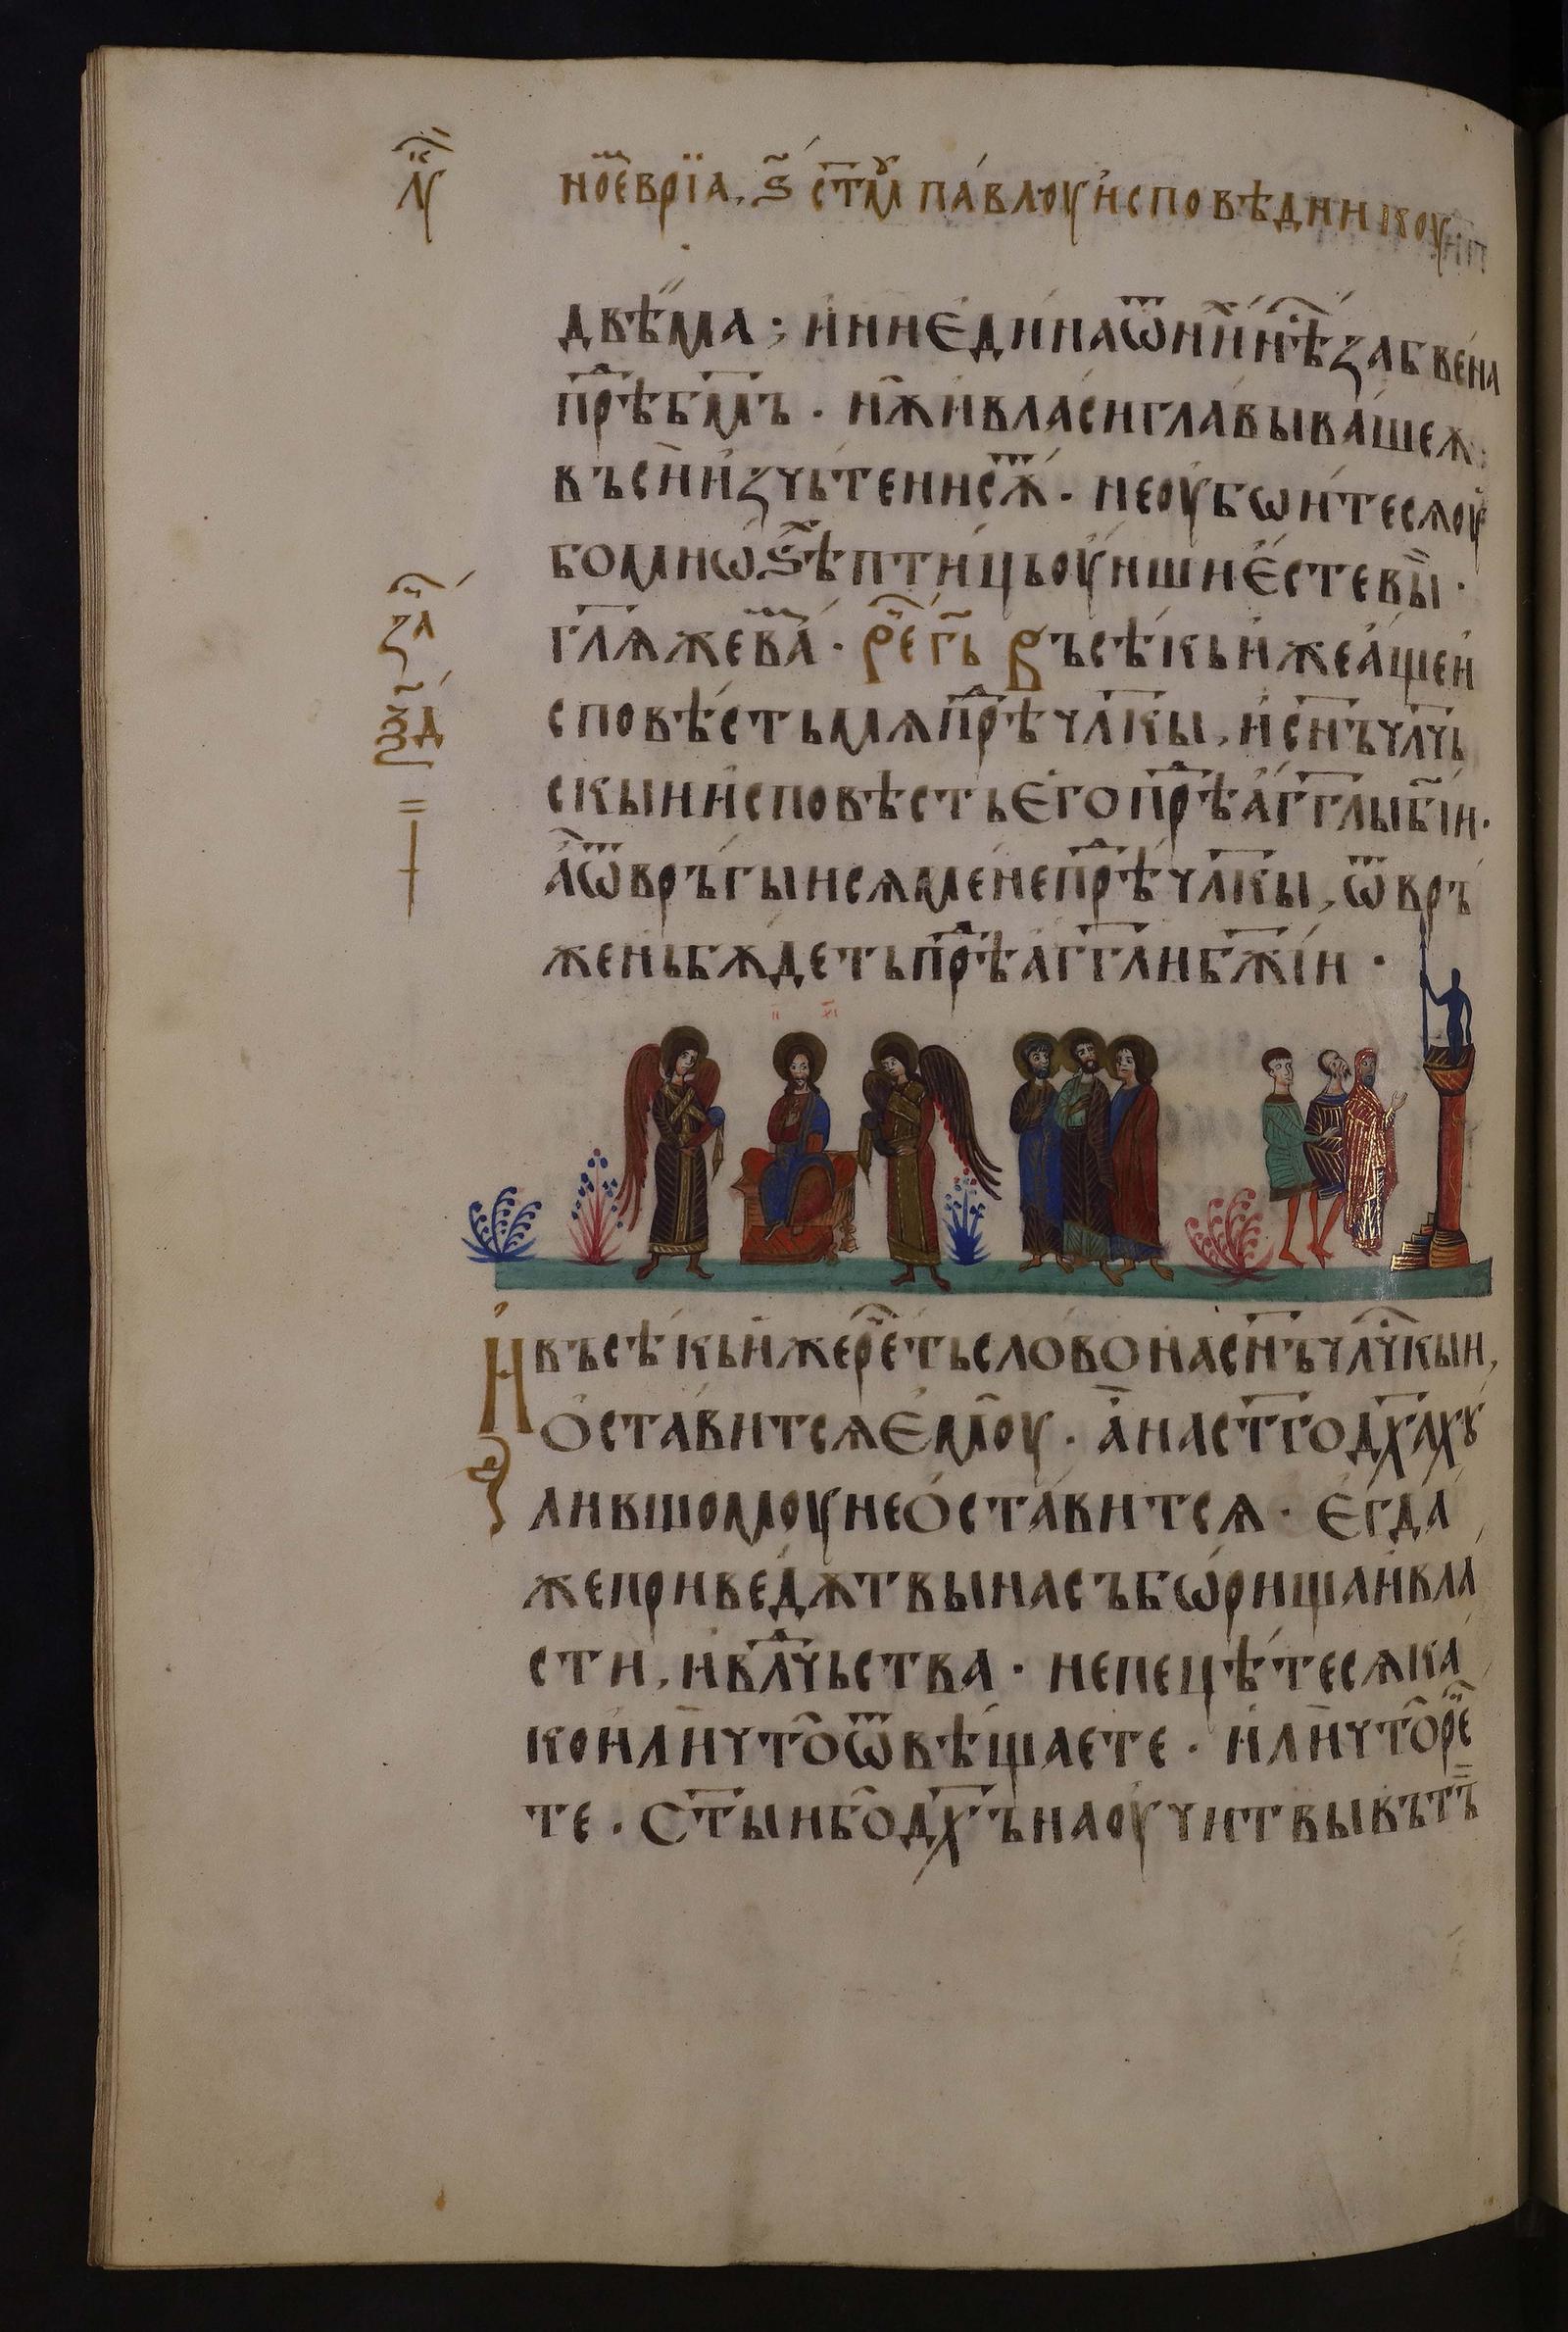 лꙋ҃
ноеврїа, ѕ҃ ст҃м паѵлоу исповѣдникоу
двѣма ; и ни едина ѿ ни нѣ забвена
прѣ б҃мъ · нѫ и власи главы вашеѫ
въси изчьтени сѫ · не оубѡите сѧ оу
бо мнѡѕѣ птиць оуиши есте вы ·
гл҃ѧ же ва · ре г҃ь Въсѣкь иже аще и
сповѣсть мѧ прѣ чл҃кы, и сн҃ъ чл҃чь
скыи исповѣсть его прѣ агг҃лы б҃їи ·
а ѿвръгыи сѧ мене прѣ чл҃кы, ѿвръ
жень бѫдеть прѣ агг҃ли бж҃їи ·
за҃
рм҃д
И въсѣкь иже реть слово на сн҃ъ чл҃чкыи,
оставит сѧ емоу · а на ст҃го дх҃а хꙋ
ливьшомоу не оставит сѧ · егда
же приведѫт вы на събѡрища и вла
сти, и влⷣчьства · не пецѣте сѧ ка
ко или что ѿвѣщаете · или что ре
те · Ст҃ыи бо дх҃ъ наоучит вы въ тъ